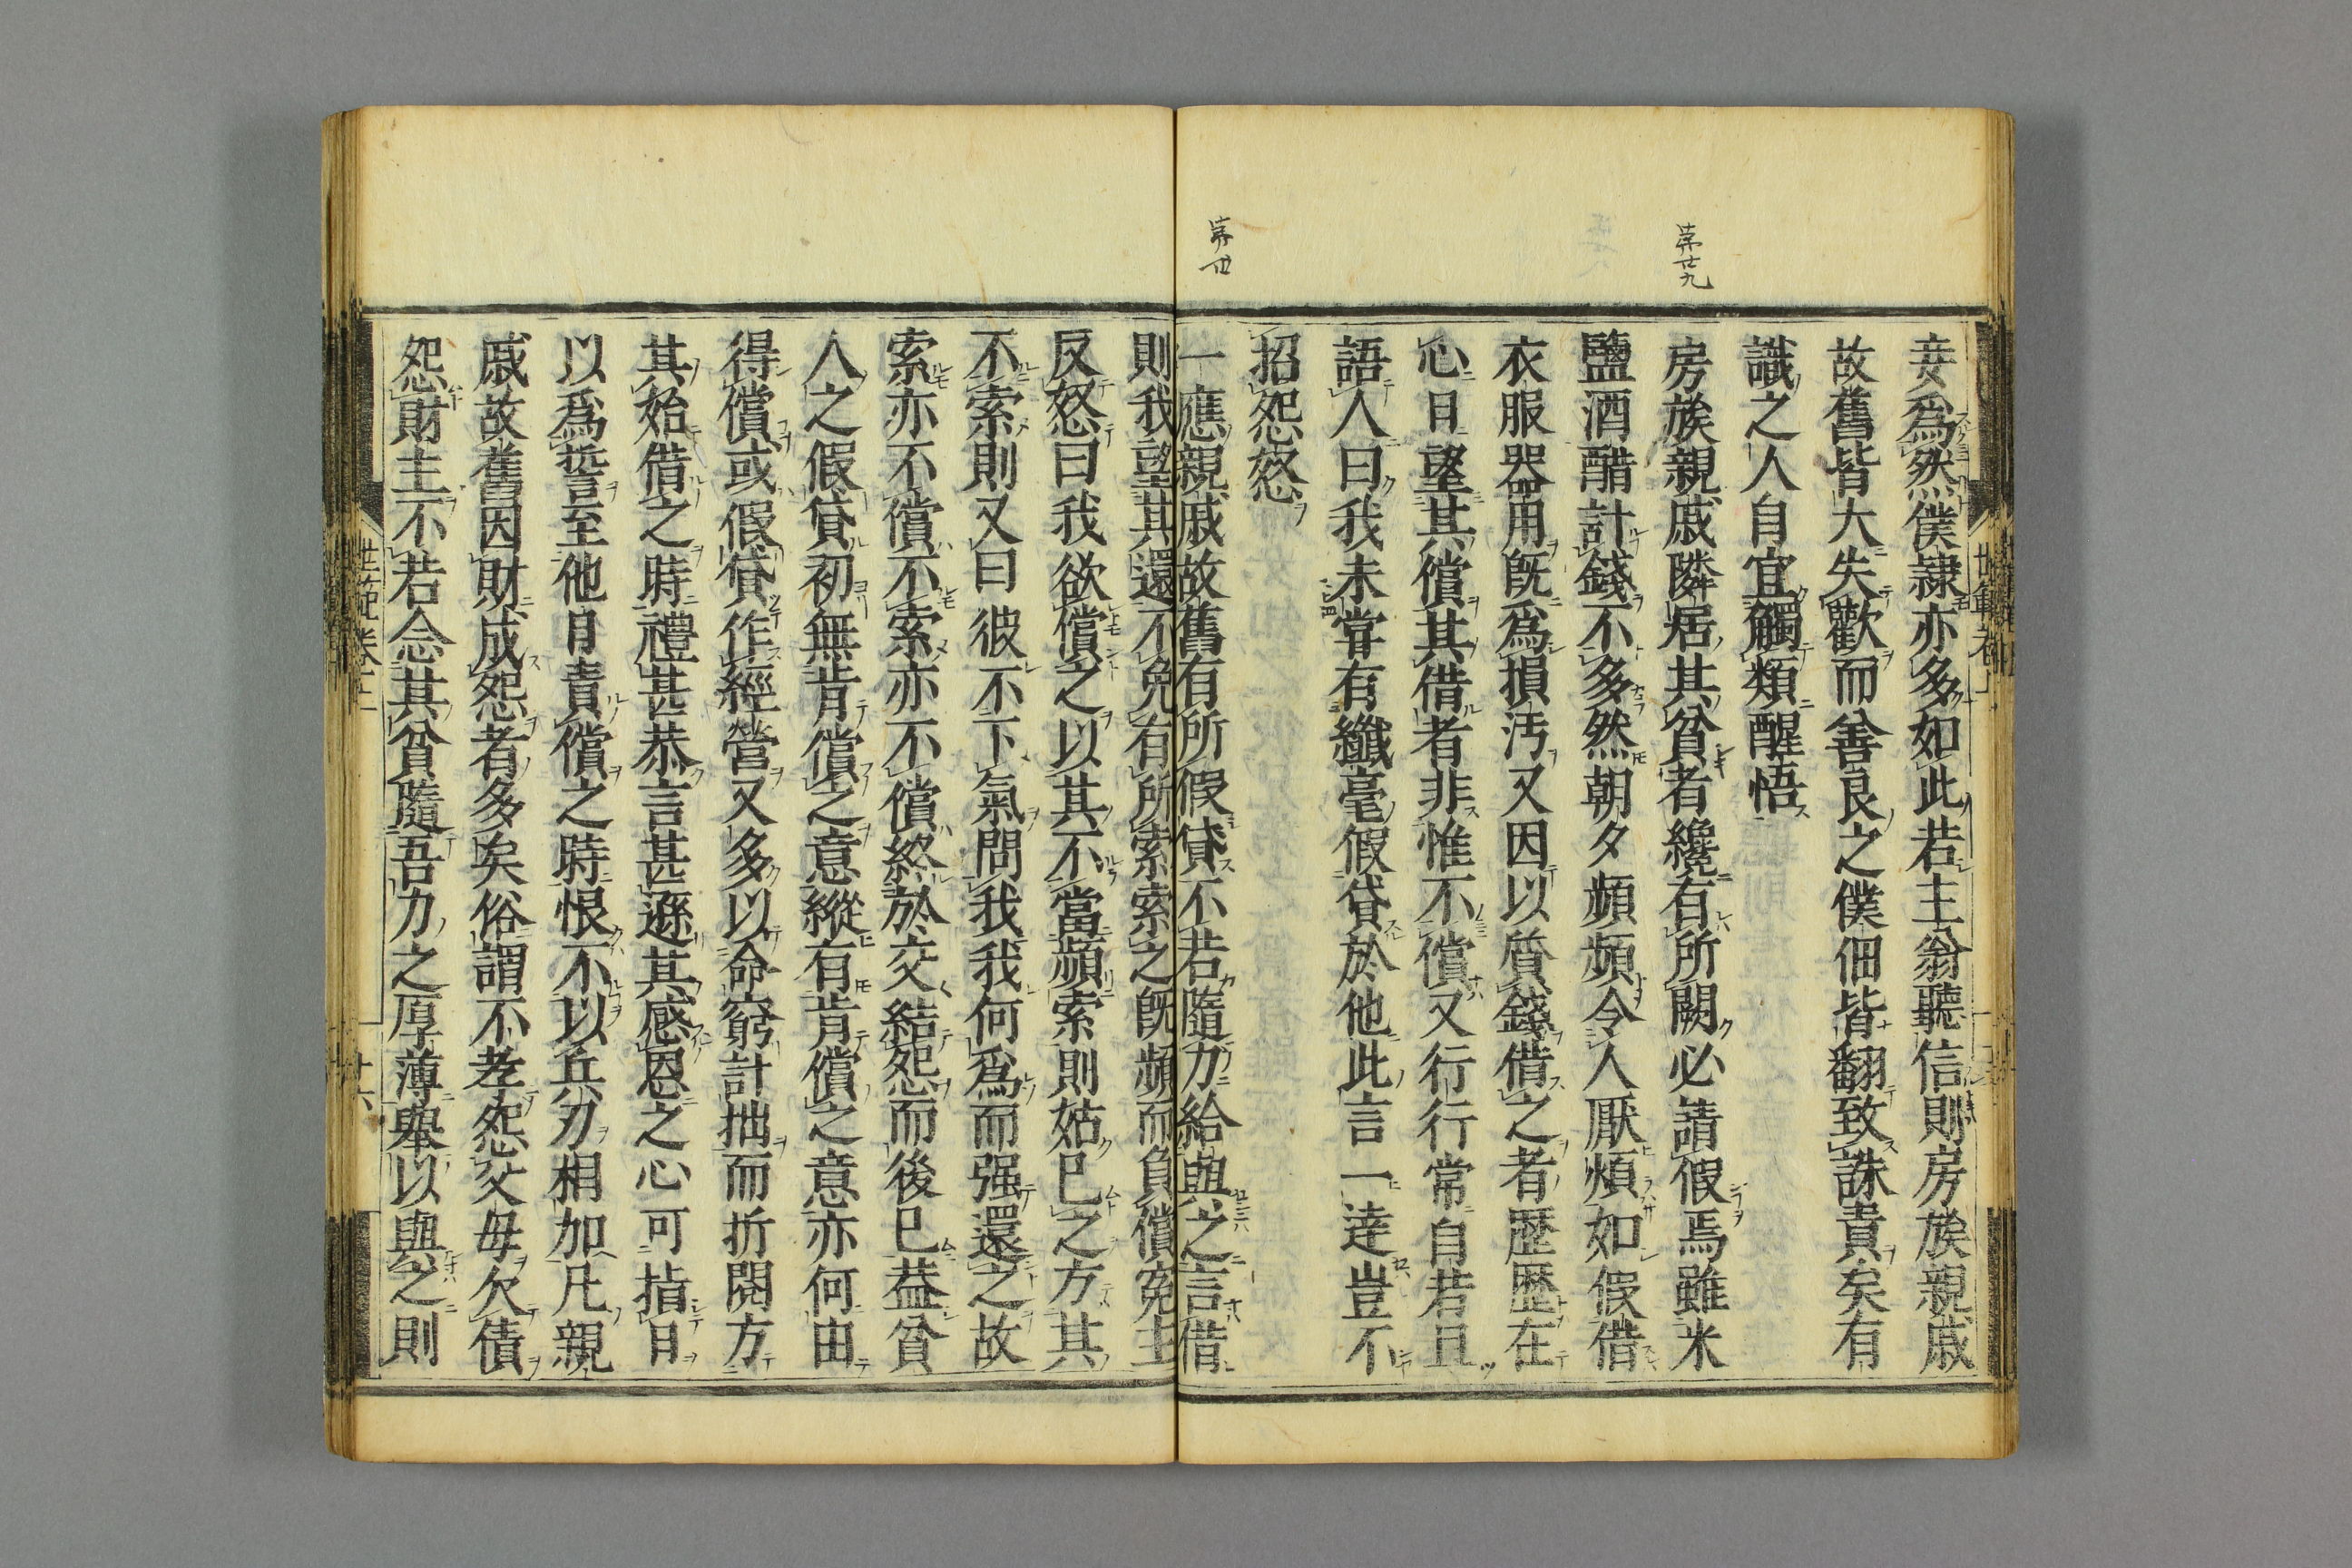 妾爲然僕隷亦多如此若主翁聽信則房族親戚
故舊皆大失歡而善良之僕佃皆翻致誅責矣有
識之人自宜觸類醒悟
第廿九
房族親戚隣居其貧者纔有所闕必請假焉雖米
鹽酒醋計錢不多然朝夕頻頻令人厭煩如假借
衣服器用既爲損汚又因以質錢借之者歴歴在
心日望其償其借者非惟不償又行行常自若且
語人曰我未甞有纖毫假貸於他此言一達豈不
招怨怒
第卅
一應親戚故舊有所假貸不若隨力給與之言借
則我望其還不免有所索索之既頻而負償寃主
反怒曰我欲償之以其不當頻索則姑已之方其
不索則又曰彼不下氣問我我何爲而强還之故
索亦不償不索亦不償終於交結怨而後已葢貧
人之假貸初無肯償之意縱有肯償之意亦何由
得償或假貸作經營又多以命窮計拙而折閱方
其始借之時禮甚恭言甚遜其感恩之心可指日
以爲誓至他日責償之時恨不以兵刃相加凡親
戚故舊因財成怨者多矣俗謂不孝怨父母欠債
怨財主不若念其貧隨吾力之厚薄舉以與之則
世範卷上
十六